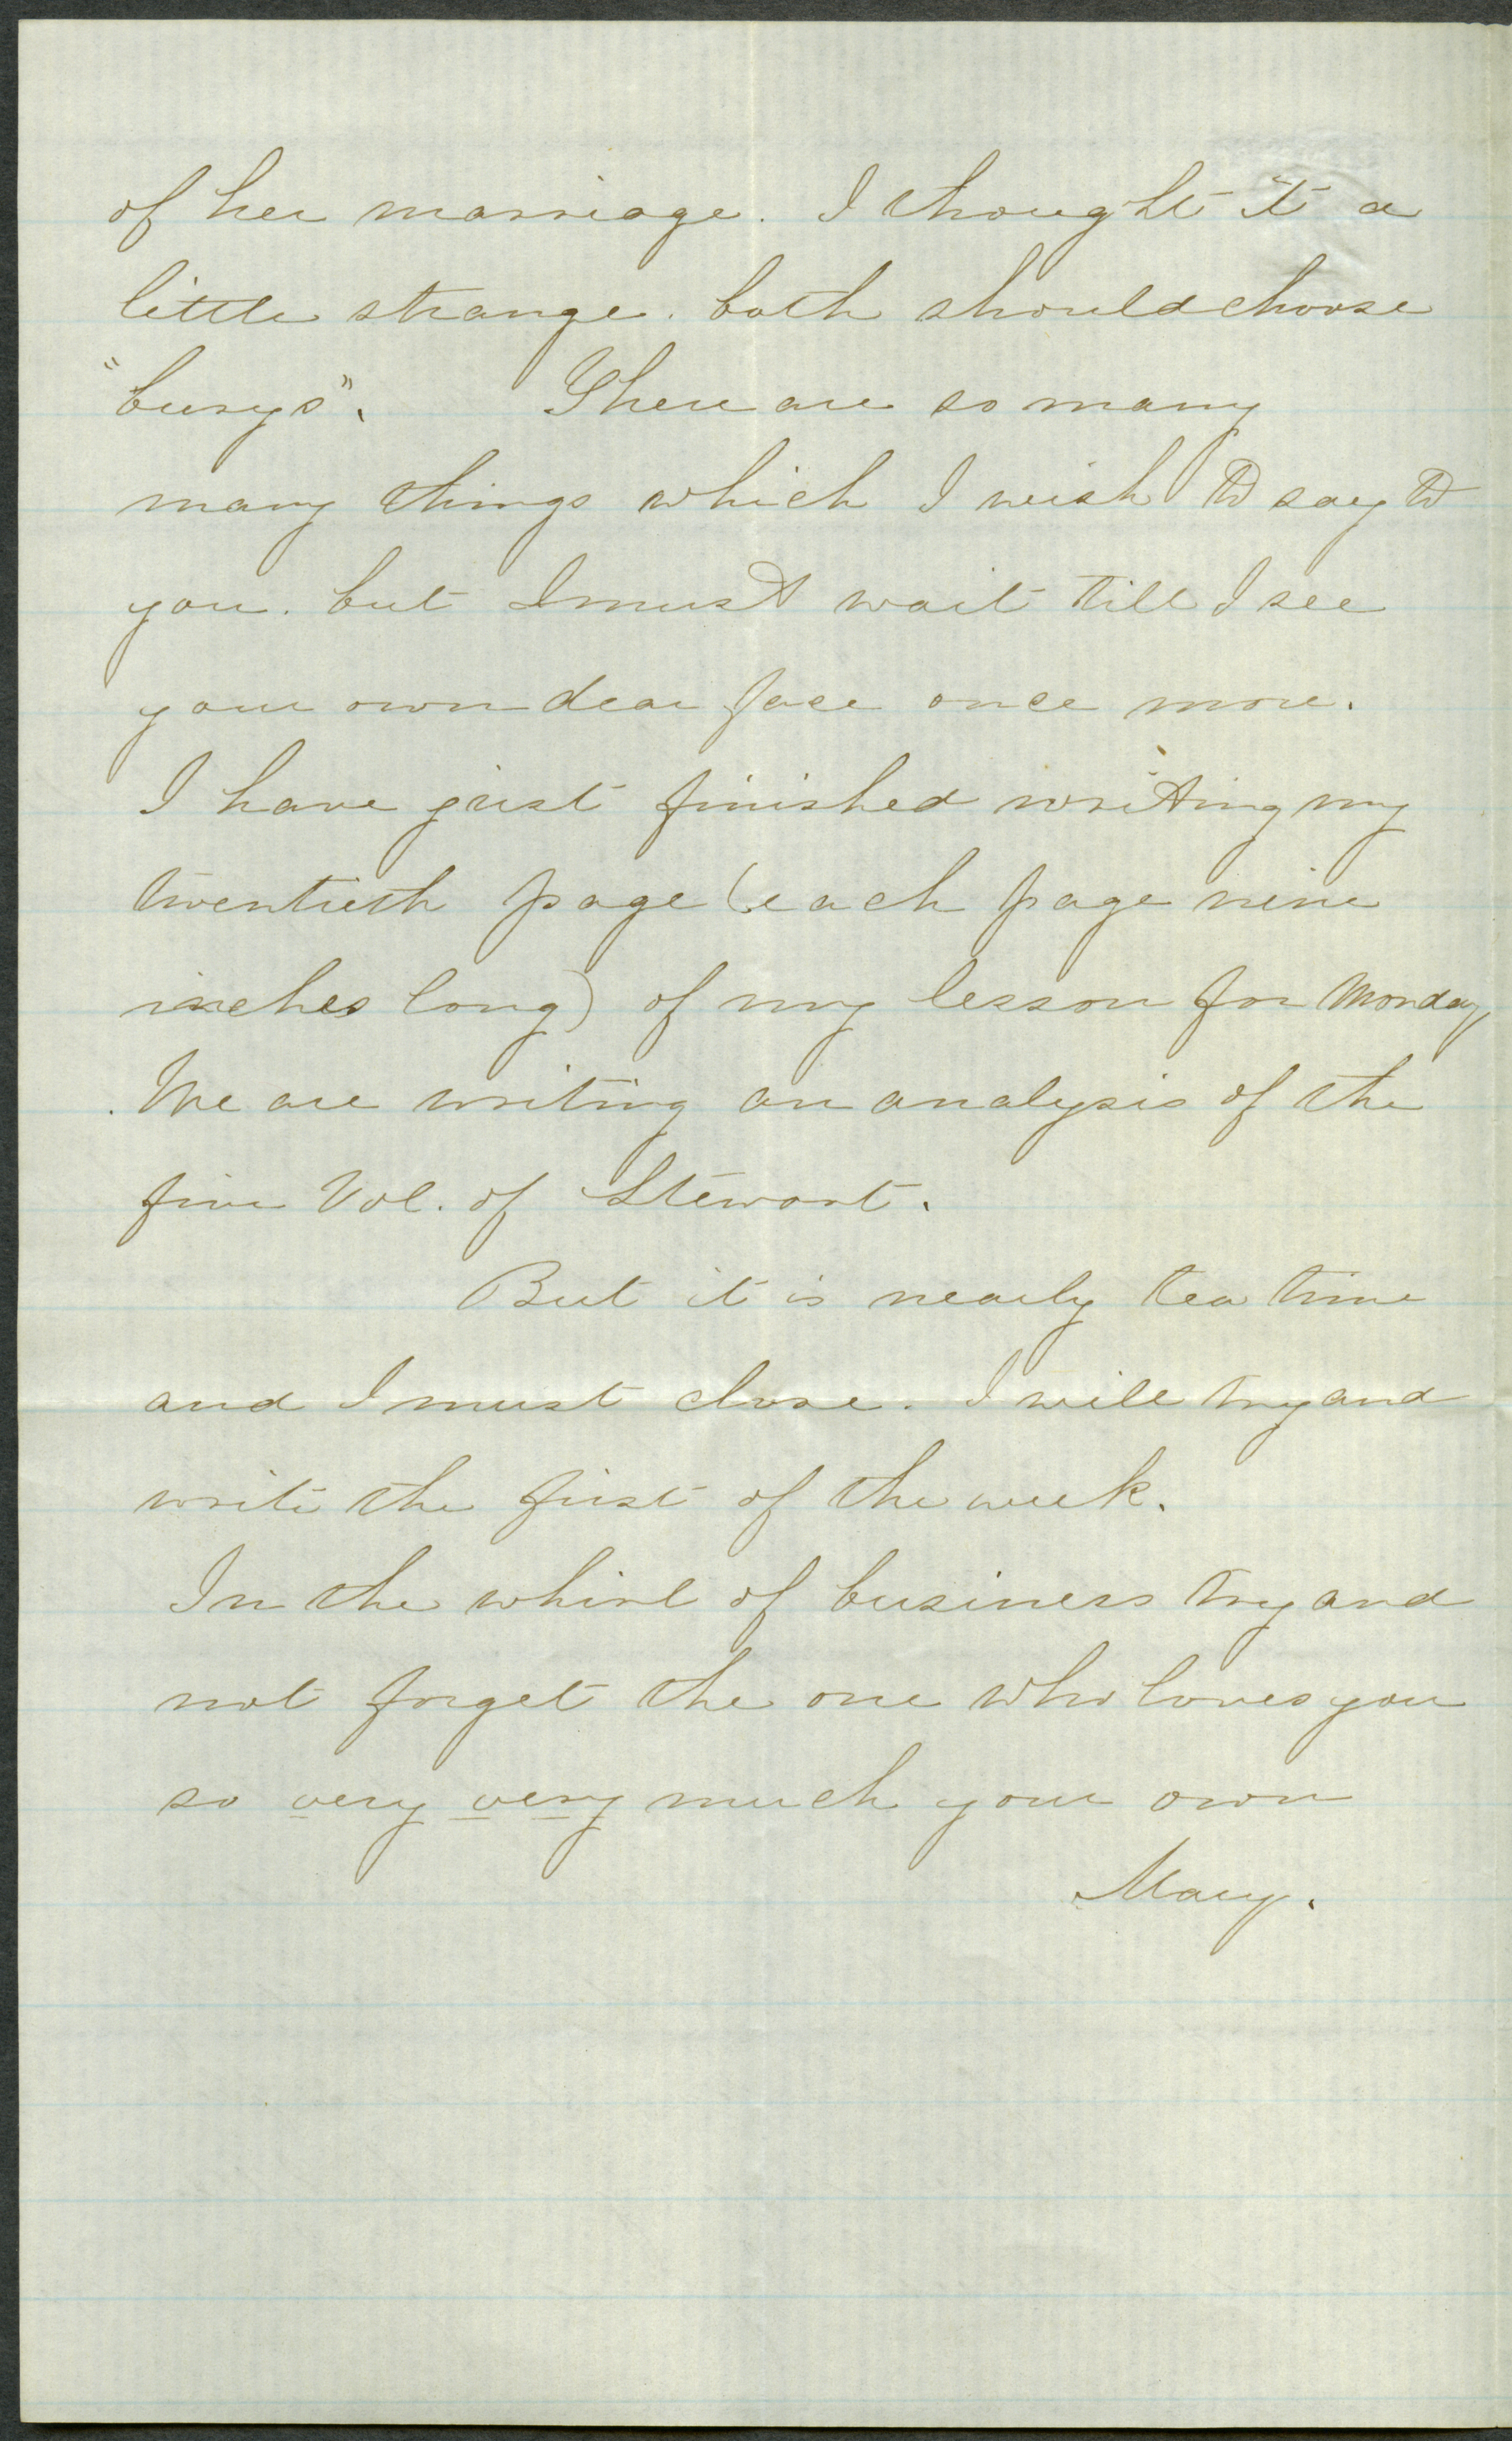 of her marriage. I thought it a
little strange. both should choose
"burys". There are so many
many things which I wish to say to
you. but I must wait till I see
your own dear face once more.
I have just finished writing my
twentieth page (each page nine
inches long) of my lesson for Monday,
We are writing an analysis of the
five Vol. of Stewart.
But it is nearly tea time
and I must close. I will try and
write the first of the week.
In the whirl of business try and
not forget the one who loves you
so very very much your own
Mary.